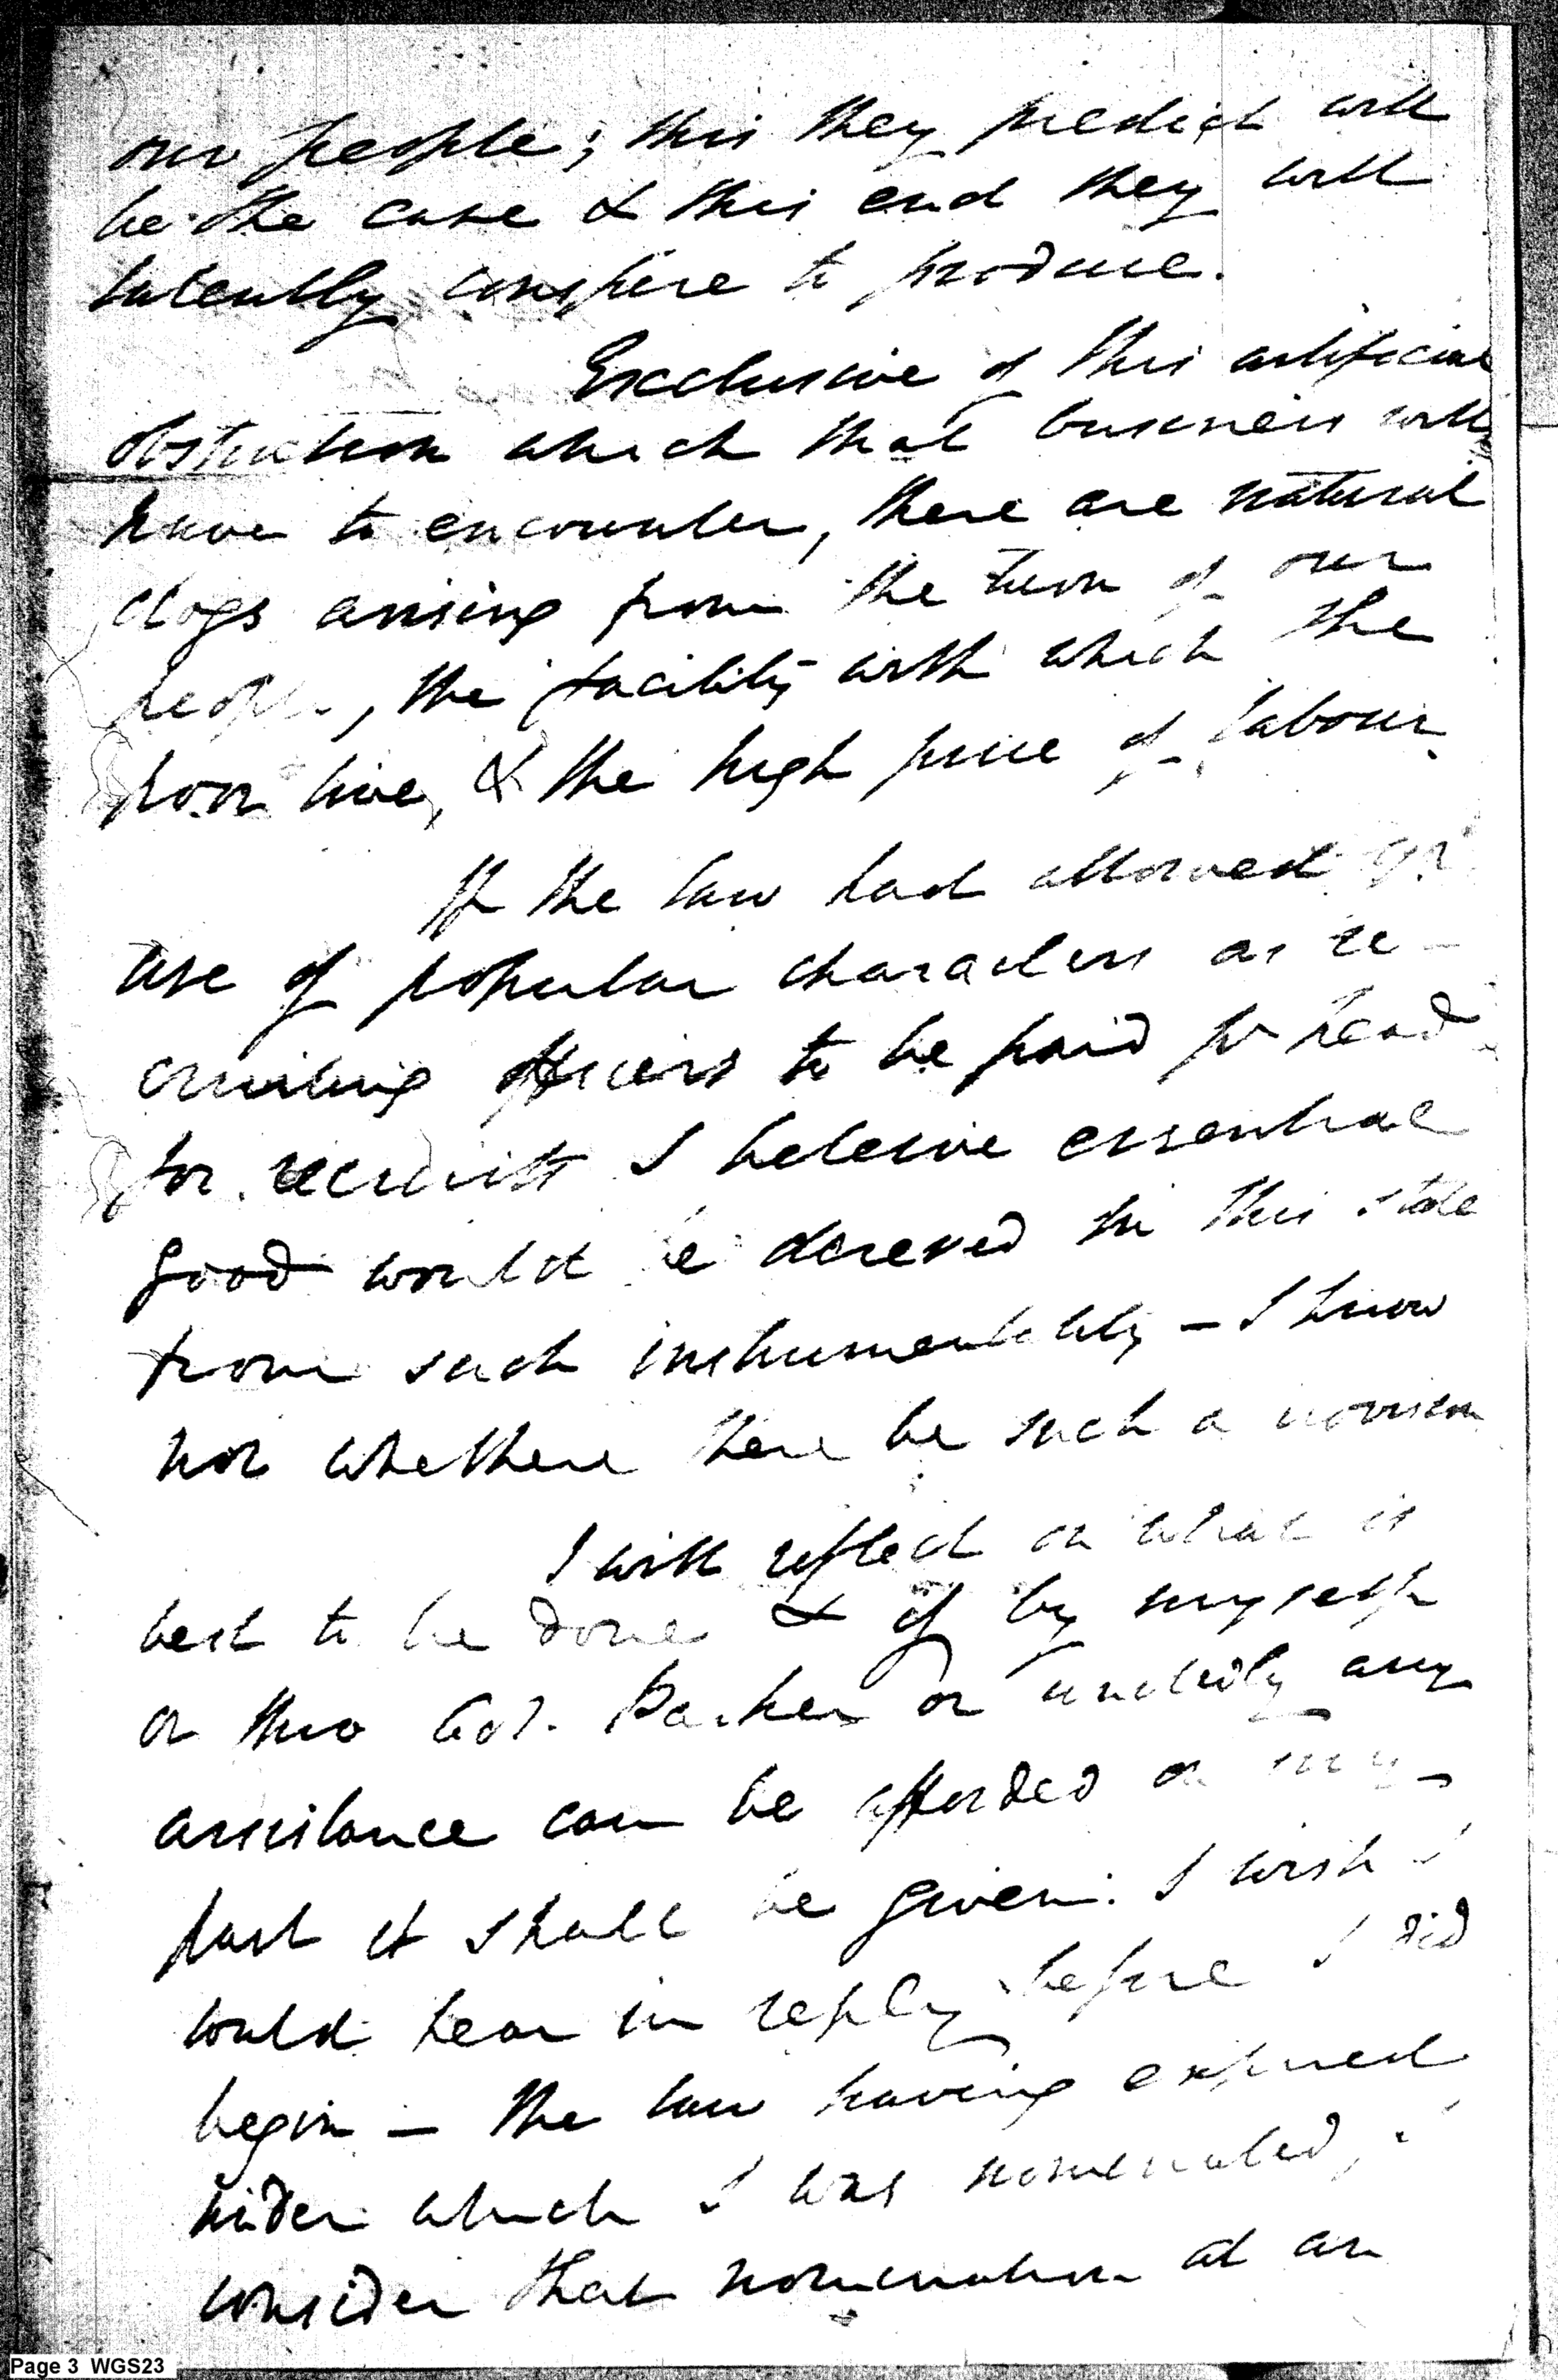 our people; this they predict will
be the case & this end they will
latently conspire to produce.
Exclusive of this artificial
obstruction which that business will
have to encounter, there are natural
clogs arising from the turn of our
people, the facility with which the
poor live, & the high price of labour.
If the law had allowed
use of popular characters as re-
cruiting officers to be paid pr head
for recruits I beleive essential
good would be derived in this state
from such instrumentality - I know
not whether there be such a provision
I will reflect on what is
best to be done & if by myself
or thro Col. Parker or any
assistance can be afforded on my
part it shall be given. I wish I
could hear in reply before I did
begin - the law having expired
under which I was nominated, I
consider that nomination at an
Page 3 WGS23